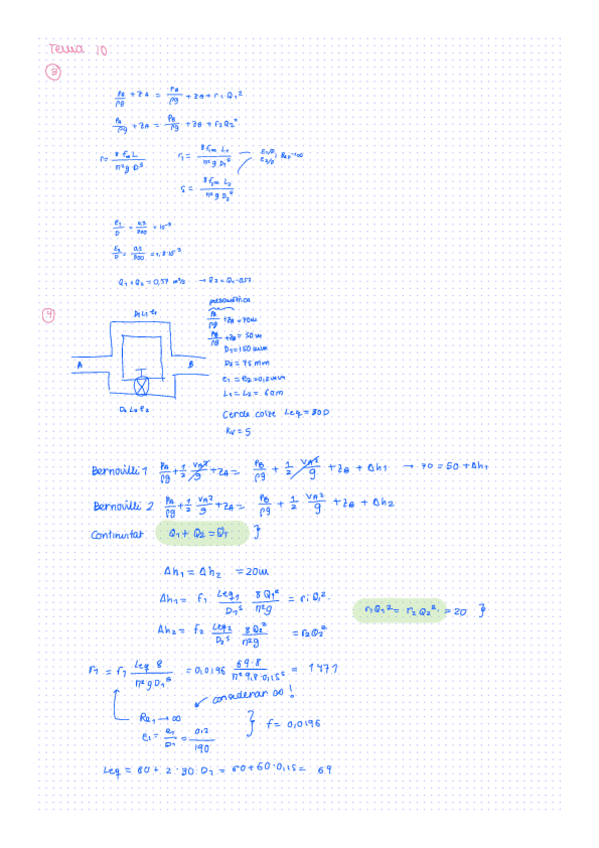 Tema 10
3
PA/ρg + ZA = PA/ρg + ZB + r1 Q1²
PA/ρg + ZA = PB/ρg + ZB + r2 Q2²
r = 8 fm L / π² g D⁵   r1 = 8 f1m L1 / π² g D1⁵   ε1/D, ε2/D, Re→∞
= 8 f2m L2 / π² g D2⁵
ε1/D = 0,3/300 = 10⁻³
= 1,2·10⁻³
Q1 + Q2 = 0,57 m³/s → Q2 =
4
piezométrica
D1 L1 e1
PA/ρg + ZA = 70m
PB/ρg + ZB = 50m
D1 = 150 mm
A   B
D2 = 75 mm
e1 = e2 = 0,2 mm
L1 = L2 = 60m
D2 L2 e2
Leq = 30D
Kv = 5
Bernoulli 1 PA/ρg + 1/2 VA²/g + ZA = PB/ρg + 1/2 VA²/g + ZB + Δh1 → 70 = 50 + Δh1
Bernoulli 2 PA/ρg + 1/2 VA²/g + ZA = PB/ρg + 1/2 VA²/g + ZB + Δh2
Continuitat Q1 + Q2 = QT }
Δh1 = Δh2 = 20m
Δh1 = f1 Leq1/D1⁵ 8Q1²/π²g = r1 Q1²
r1Q1² = r2Q2² = 20 }
Δh2 = f2 Leq2/D2⁵ 8Q2²/π²g = r2Q2²
r1 = f1 Leq 8 / π² g D1⁵ = 0,0196 69·8 / π² 9,8·0,15⁵ = 1477
consideran ∞ !
Re1 → ∞
e1 = e1/D1 = 0,2/190 } f = 0,0196
Leq = 60 + 2·30·D1 = 60 + 60·0,15 = 69